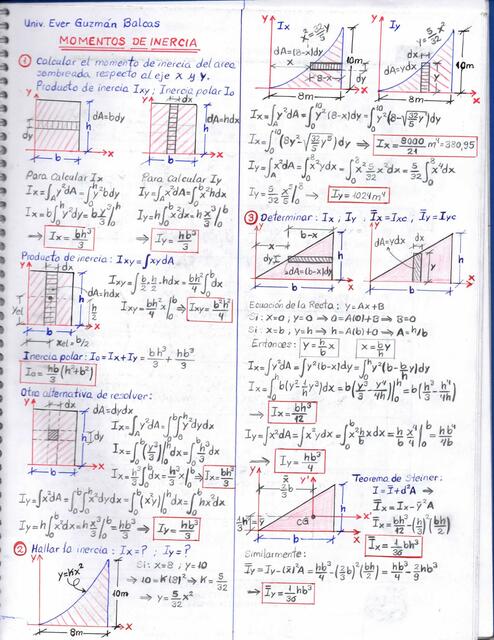 Univ. Ever Guzmán Balcas
MOMENTOS DE INERCIA
① Calcular el momento de inercia del area
sombreada, respecto al eje X y Y.
Producto de inercia Ixy ; Inercia polar Io
y
dy
h
b
x
y
dx
dA=hdx
h
b
x
Para Calcular Ix
Ix=∫_A y²dA=∫₀^h y²bdy
Ix=b∫₀^h y²dy=b y³/3|₀^h
⇒ Ix= bh³/3
Para Calcular Iy
Iy=∫_A x²dA=∫₀^b x²hdx
Iy=h∫₀^b x²dx=h x³/3|₀^b
⇒ Iy= hb³/3
Producto de inercia: Ixy=∫xydA
y
dx
dA=hdx
h
h/2
yel
xel=b/2
b
x
Ixy=∫ b/2.h/2.hdx= bh²/4∫₀^b dx
Ixy= bh²/4 x|₀^b ⇒ Ixy= b²h²/4
Inercia polar: Io=Ix+Iy= bh³/3 + hb³/3
Io= hb/3(h²+b²)
Otra alternativa de resolver:
y
dx
dA=dydx
dy
h
b
x
Ix=∫_A y²dA=∫₀^b∫₀^h y²dydx
Ix=∫₀^b(y³/3)|₀^h dx=∫₀^b h³/3 dx
Ix= h³/3∫₀^b dx= h³/3 x|₀^b ⇒ Ix= bh³/3
Iy=∫_A x²dA=∫₀^b∫₀^h x²dydx=∫₀^b(x²y)|₀^h dx=∫₀^b hx²dx
Iy=h∫₀^b x²dx=h x³/3|₀^b= hb³/3 ⇒ Iy= hb³/3
② Hallar la inercia : Ix=? ; Iy=?
y
y=Kx²
10m
8m
x
Si: x=8 ; y=10
⇒ 10=K(8)² ⇒ K= 5/32
⇒ y= 5/32 x²
y
Ix
x²=32/5 y
dA=(8-x)dy
x
8-x
dy
10m
8m
x
y
Iy
y=5/32 x²
dx
dA=ydx
y
10m
8m
x
Ix=∫_A y²dA=∫₀^10 y²(8-x)dy=∫₀^10 y²(8-√(32/5 y))dy
Ix=∫₀^10(8y²-√(32/5) y^(5/2))dy ⇒ Ix= 8000/21 m⁴=380,95
Iy=∫_A x²dA=∫₀^8 x²ydx=∫₀^8 x² 5/32 x²dx= 5/32∫₀^8 x⁴dx
Iy= 5/32 x⁵/5|₀^8 ⇒ Iy=1024m⁴
③ Determinar: Ix ; Iy ; Īx=Ixc , Īy=Iyc
y
b-x
x
dy
dA=(b-x)dy
h
b
x
y
dx
dA=ydx
y
h
b
x
Ecuación de la Recta: y=Ax+B
Si: x=0, y=0 ⇒ 0=A(0)+B ⇒ B=0
Si: x=b, y=h ⇒ h=A(b)+0 ⇒ A=h/b
Entonces: y= h/b x x= b/h y
Ix=∫y²dA=∫y²(b-x)dy=∫₀^h y²(b- b/h y)dy
Ix=∫₀^h b(y²- 1/h y³)dy=b(y³/3 - y⁴/4h)|₀^h=b(h³/3 - h⁴/4h)
⇒ Ix= bh³/12
Iy=∫x²dA=∫x²ydx=∫₀^b x² h/b xdx= h/b x⁴/4|₀^b= hb⁴/4b
⇒ Iy= hb³/4
y
x̄
2/3 b
h
1/3 h=ȳ
CG
b
x
Teorema de Steiner:
I=Ī+d²A ⇒
Īx=Ix-ȳ²A
Īx= bh³/12 -(h/3)²(bh/2)
Īx= 1/36 bh³
Similarmente:
Īy=Iy-(x̄)²A= hb³/4 -(2/3 b)²(bh/2)= hb³/4 - 2/9 hb³
Īy= 1/36 hb³